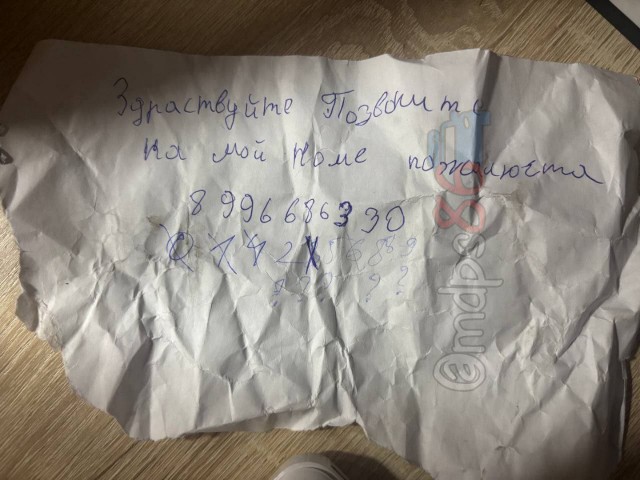 Здраствуйте Позвоните
на мой номе пожалюста
8 996 686 3 30
@mdps86